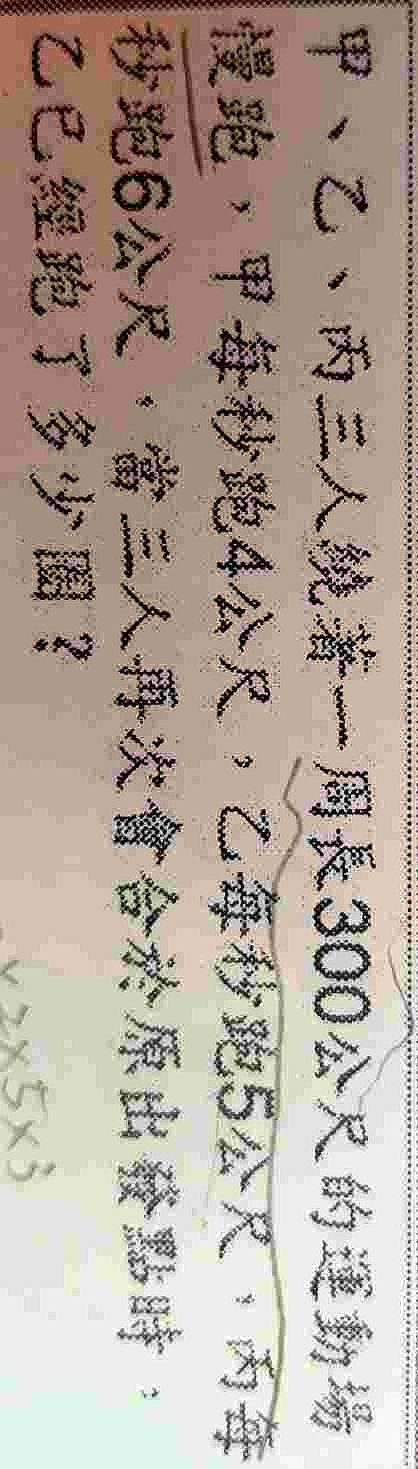 甲、乙、丙三人繞著一周長300公尺的運動場
慢跑,甲每秒跑4公尺,乙每秒跑5公尺,丙每
秒跑6公尺,當三人再次會合於原出發點時,
乙已經跑了多少圈?
×2×5×3